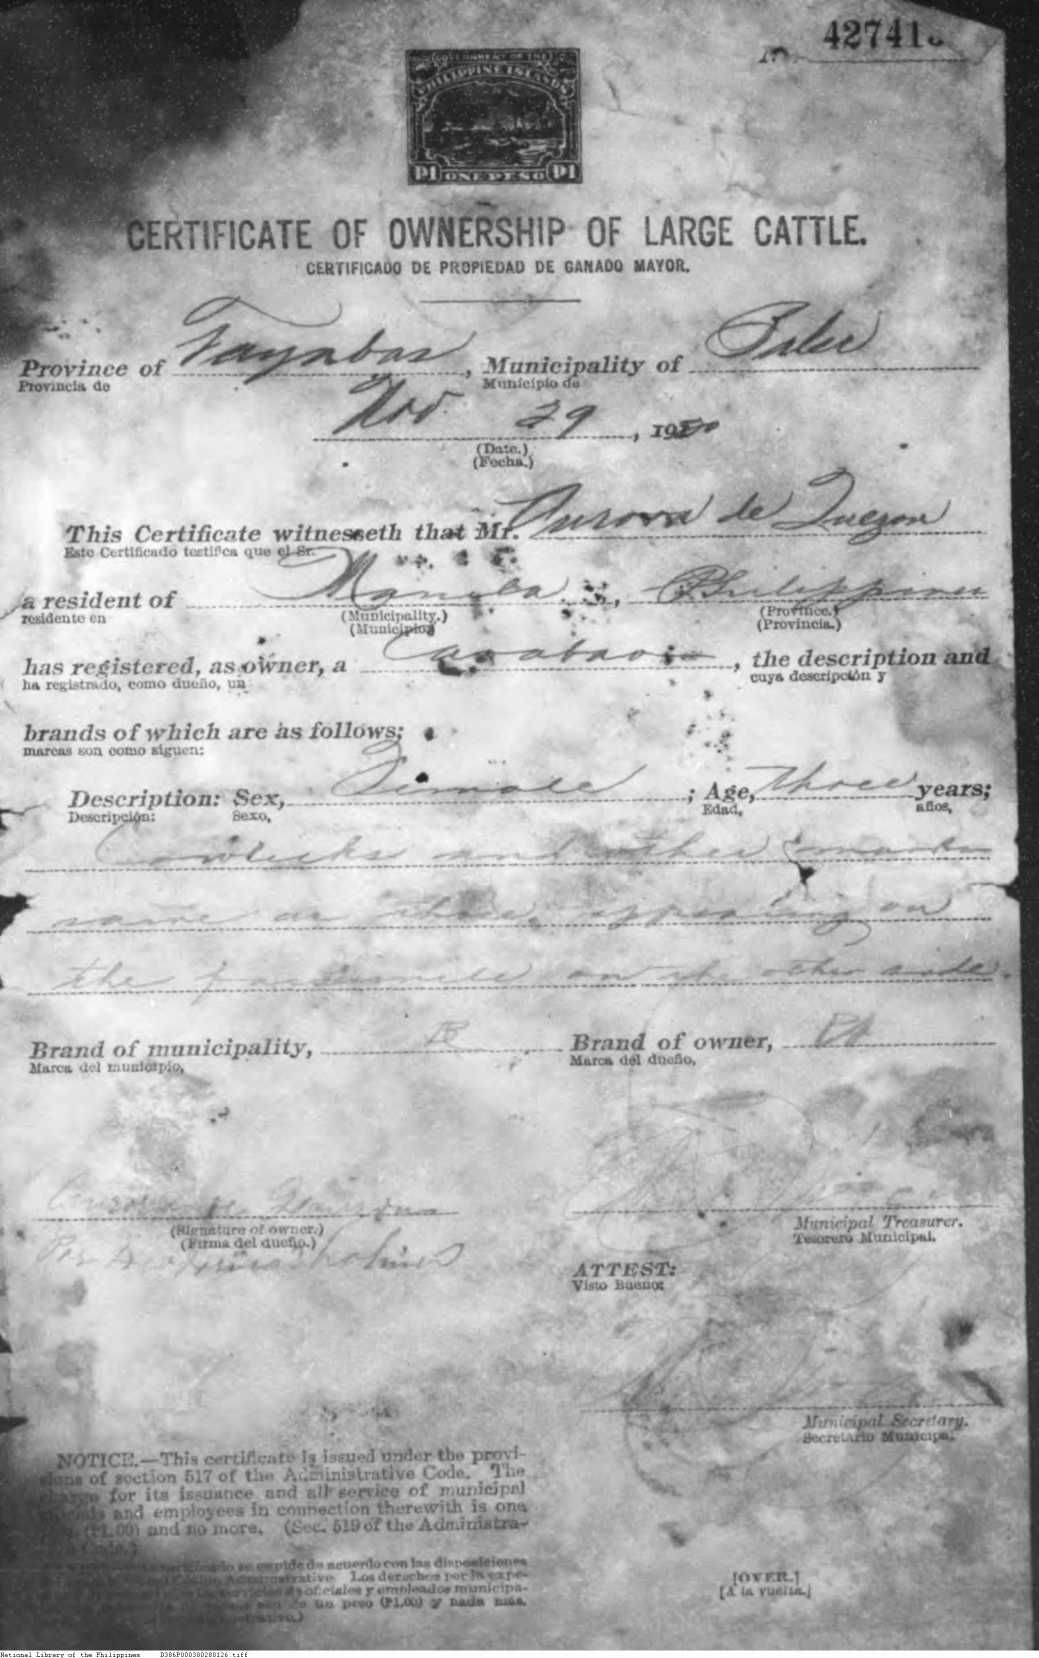 No. 42741
GOVERNMENT OF THE
PHILIPPINE ISLANDS
P1 ONE PESO P1
CERTIFICATE OF OWNERSHIP OF LARGE CATTLE.
CERTIFICADO DE PROPIEDAD DE GANADO MAYOR.
Province of Tayabas, Municipality of Baler
Provincia de Municipio de
Nov. 29, 19
(Date.)
(Fecha.)
This Certificate witnesseth that Mr. Aurora de Quezon
Este Certificado testifica que el Sr.
a resident of Manila, Philippines
residente en (Municipality.) (Province.)
(Municipio) (Provincia.)
has registered, as owner, a Carabao, the description and
ha registrado, como dueño, un cuya descripción y
brands of which are as follows:
marcas son como siguen:
Description: Sex, Female; Age, three years;
Descripción: Sexo, Edad, años,
Cowlicks and other marks
same as those appearing on
the facsimile on the other side.
Brand of municipality, Brand of owner,
Marca del municipio, Marca del dueño,
Aurora de Quezon
(Signature of owner.) Municipal Treasurer.
(Firma del dueño.) Tesorero Municipal.
Por
ATTEST:
Visto Bueno:
Municipal Secretary.
Secretario Municipal.
NOTICE.—This certificate is issued under the provi-
sions of section 517 of the Administrative Code. The
charge for its issuance and all service of municipal
and employees in connection therewith is one
(P1.00) and no more. (Sec. 519 of the Administra-
Code.)
certificado se expide de acuerdo con las disposiciones
Administrativo. Los derechos por la expe-
oficiales y empleados municipa-
de un peso (P1.00) y nada más.
[OVER.]
[A la vuelta.]
National Library of the Philippines D386P000300280126.tiff